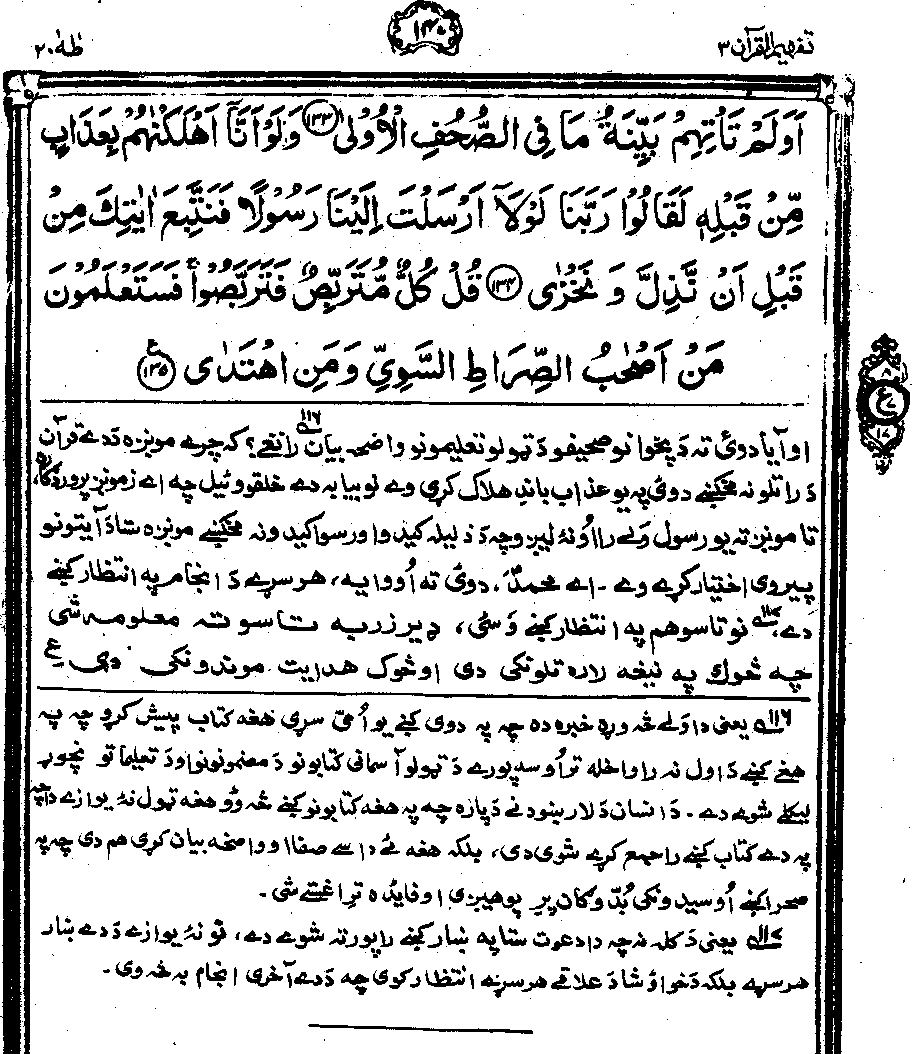 تفهیم القرآن ۳
۱۴۰
طٰهٰ ۲۰
اَوَلَمْ تَاْتِهِمْ بَيِّنَةُ مَا فِى الصُّحُفِ الْاُوْلٰى ﴿۱۳۳﴾ وَلَوْ اَنَّآ اَهْلَكْنٰهُمْ بِعَذَابٍ
مِّنْ قَبْلِهٖ لَقَالُوْا رَبَّنَا لَوْلَآ اَرْسَلْتَ اِلَيْنَا رَسُوْلًا فَنَتَّبِعَ اٰيٰتِكَ مِنْ
قَبْلِ اَنْ نَّذِلَّ وَ نَخْزٰى ﴿۱۳۴﴾ قُلْ كُلٌّ مُّتَرَبِّصٌ فَتَرَبَّصُوْا ۚ فَسَتَعْلَمُوْنَ
مَنْ اَصْحٰبُ الصِّرَاطِ السَّوِيِّ وَمَنِ اهْتَدٰى ﴿۱۳۵﴾ ع
۸
ع
۱۷
او آیا دوئ ته دَ پخوا نو صحیفو دَ ټولو تعلیمونو واضحه بیان ۱۱۶ـه رانغے؟ که چرے مونږه دَ دے قرآن
دَ راتلو نه مخکښے دوئ په یو عذاب باندِ هلاک کړي وے نو بیا به دے خلقو وئیل چه اے زمونږ پروردګاره،
تا مونږ ته یو رسول ولے را اُونۀ لیږو چه دَ ذلیله کیدو او رسوا کیدو نه مخکښے مونږه ستا دَ آیتونو
پیروی اختیار کړے وے ۔ اے محمدؐ، دوئ ته اُووایه، هر سړے دَ انجام په انتظار کښے
دے، ۱۱۷ـه نو تاسو هم په انتظار کښے وَسئ، ډیر زر به تاسو ته معلومه شی
چه څوک په نیغه لاره تلونکی دی او څوک هدایت موندونکی دی ع
۱۱۶ـه یعنی دا ولے څه وړه خبره ده چه په دوی کښے یو اُمّی سړی هغه کتاب پیش کړو چه په
هغے کښے دَ اول نه را واخله تر اُوسه پورے دَ ټولو آسمانی کتابونو دَ مضمونونو او دَ تعلیماتو نچوړ
لیکلے شوے دے ۔ دَ انسان دَ لارښودنے دَ پاره چه په هغه کتابونو کښے څه وُو هغه ټول نۀ یوازے دا چه
په دے کتاب کښے را جمع کړے شوی دی، بلکه هغه ئے داسے صفا او واضحه بیان کړی هم دی چه په
صحرا کښے اُوسیدونکی بُدّوګان پرِ پوهیږی او فائده ترِ اغستے شی ۔
۱۱۷ـه یعنی دَ کله نه چه دا دعوت ستا په ښار کښے راپورته شوے دے، نو نۀ یوازے دَ دے ښار
هر سړے بلکه دَ خوا وُ شا دَ علاقے هر سړے انتظار کوی چه دَ دے آخری انجام به څه وی ۔